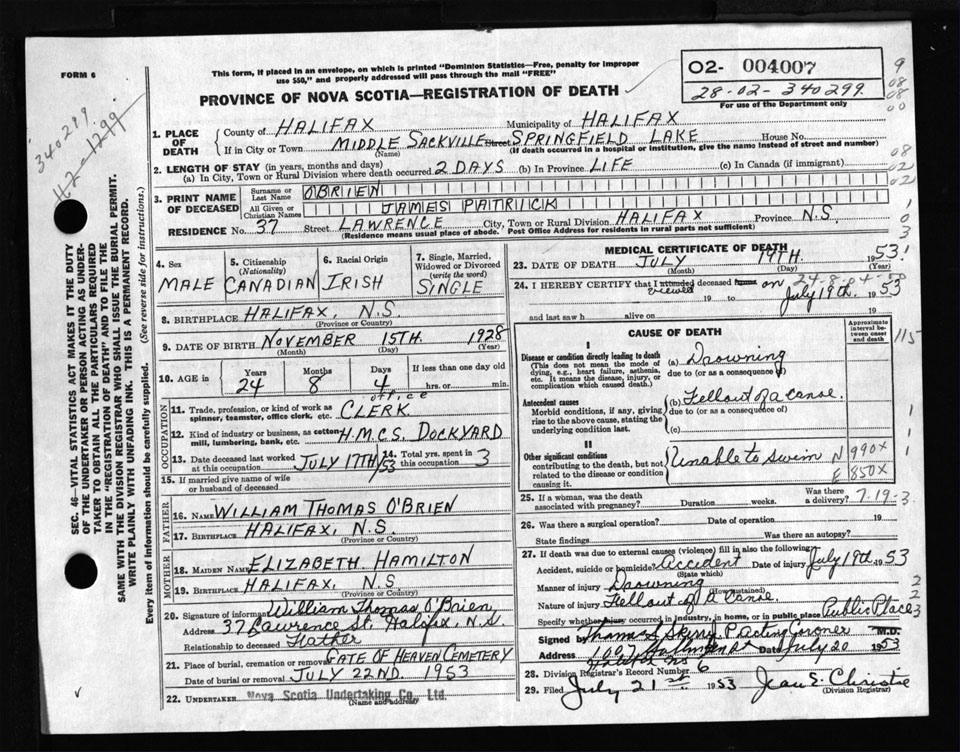 FORM 6
This form, if placed in an envelope, on which is printed "Dominion Statistics—Free, penalty for improper
use $50," and properly addressed will pass through the mail "FREE"
PROVINCE OF NOVA SCOTIA—REGISTRATION OF DEATH
02- 004007
28-02-340299
For use of the Department only
340299
1. PLACE OF DEATH
County of HALIFAX Municipality of HALIFAX
If in City or Town MIDDLE SACKVILLE Street SPRINGFIELD LAKE House No.
(Name) (If death occurred in a hospital or institution, give the name instead of street and number)
2. LENGTH OF STAY (in years, months and days)
(a) In City, Town or Rural Division where death occurred 2 DAYS (b) In Province LIFE (c) In Canada (if immigrant)
3. PRINT NAME OF DECEASED
Surname or Last Name O'BRIEN
All Given or Christian Names JAMES PATRICK
RESIDENCE No. 37 Street LAWRENCE City, Town or Rural Division HALIFAX Province N.S.
(Residence means usual place of abode. Post Office Address for residents in rural parts not sufficient)
4. Sex MALE
5. Citizenship (Nationality) CANADIAN
6. Racial Origin IRISH
7. Single, Married, Widowed or Divorced (write the word) SINGLE
8. BIRTHPLACE HALIFAX, N.S.
(Province or Country)
9. DATE OF BIRTH NOVEMBER 15TH 1928
(Month) (Day) (Year)
10. AGE in Years 24 Months 8 Days 4 If less than one day old hrs. or min.
OCCUPATION
11. Trade, profession, or kind of work as spinner, teamster, office clerk, etc. office CLERK
12. Kind of industry or business, as cotton mill, lumbering, bank, etc. H.M.C.S. DOCKYARD
13. Date deceased last worked at this occupation JULY 17TH/53
14. Total yrs. spent in this occupation 3
15. If married give name of wife or husband of deceased
FATHER
16. NAME WILLIAM THOMAS O'BRIEN
17. BIRTHPLACE HALIFAX, N.S.
(Province or Country)
MOTHER
18. MAIDEN NAME ELIZABETH HAMILTON
19. BIRTHPLACE HALIFAX, N.S
(Province or Country)
20. Signature of informant William Thomas O'Brien
Address 37 Lawrence St. Halifax, N.S.
Relationship to deceased Father
21. Place of burial, cremation or removal GATE OF HEAVEN CEMETERY
Date of burial or removal JULY 22ND. 1953
22. UNDERTAKER Nova Scotia Undertaking Co., Ltd.
(Name and address)
MEDICAL CERTIFICATE OF DEATH
23. DATE OF DEATH JULY 19TH. 1953
(Month) (Day) (Year)
24. I HEREBY CERTIFY that I attended deceased from on
viewed 19 to July 19th. 1953
and last saw h alive on
CAUSE OF DEATH
Approximate interval between onset and death
I
Disease or condition directly leading to death
(This does not mean the mode of dying, e.g., heart failure, asthenia, etc. It means the disease, injury, or complication which caused death.)
(a) Drowning
due to (or as a consequence of)
Antecedent causes
Morbid conditions, if any, giving rise to the above cause, stating the underlying condition last.
(b) Fell out of a canoe.
due to (or as a consequence of)
(c)
II
Other significant conditions
contributing to the death, but not related to the disease or condition causing it.
Unable to swim N990X
E850X
25. If a woman, was the death associated with pregnancy? Duration weeks. Was there a delivery? 7-19-3
26. Was there a surgical operation? Date of operation 19
State findings Was there an autopsy?
27. If death was due to external causes (violence) fill in also the following:
Accident, suicide or homicide? Accident Date of injury July 19th 1953
(State which)
Manner of injury Drowning
(How sustained)
Nature of injury Fell out of a Canoe.
Specify whether injury occurred in industry, in home, or in public place Public Place
Signed by Acting Coroner M.D.
Address Halifax NS Date July 20 1953
28. Division Registrar's Record Number 6
29. Filed July 21st 1953 Jean E. Christie
(Division Registrar)
SEC. 46—VITAL STATISTICS ACT MAKES IT THE DUTY
OF THE UNDERTAKER OR PERSON ACTING AS UNDER-
TAKER TO OBTAIN ALL THE PARTICULARS REQUIRED
IN THE "REGISTRATION OF DEATH" AND TO FILE THE
SAME WITH THE DIVISION REGISTRAR WHO SHALL ISSUE THE BURIAL PERMIT.
WRITE PLAINLY WITH UNFADING INK. THIS IS A PERMANENT RECORD.
Every item of information should be carefully supplied. (See reverse side for instructions.)